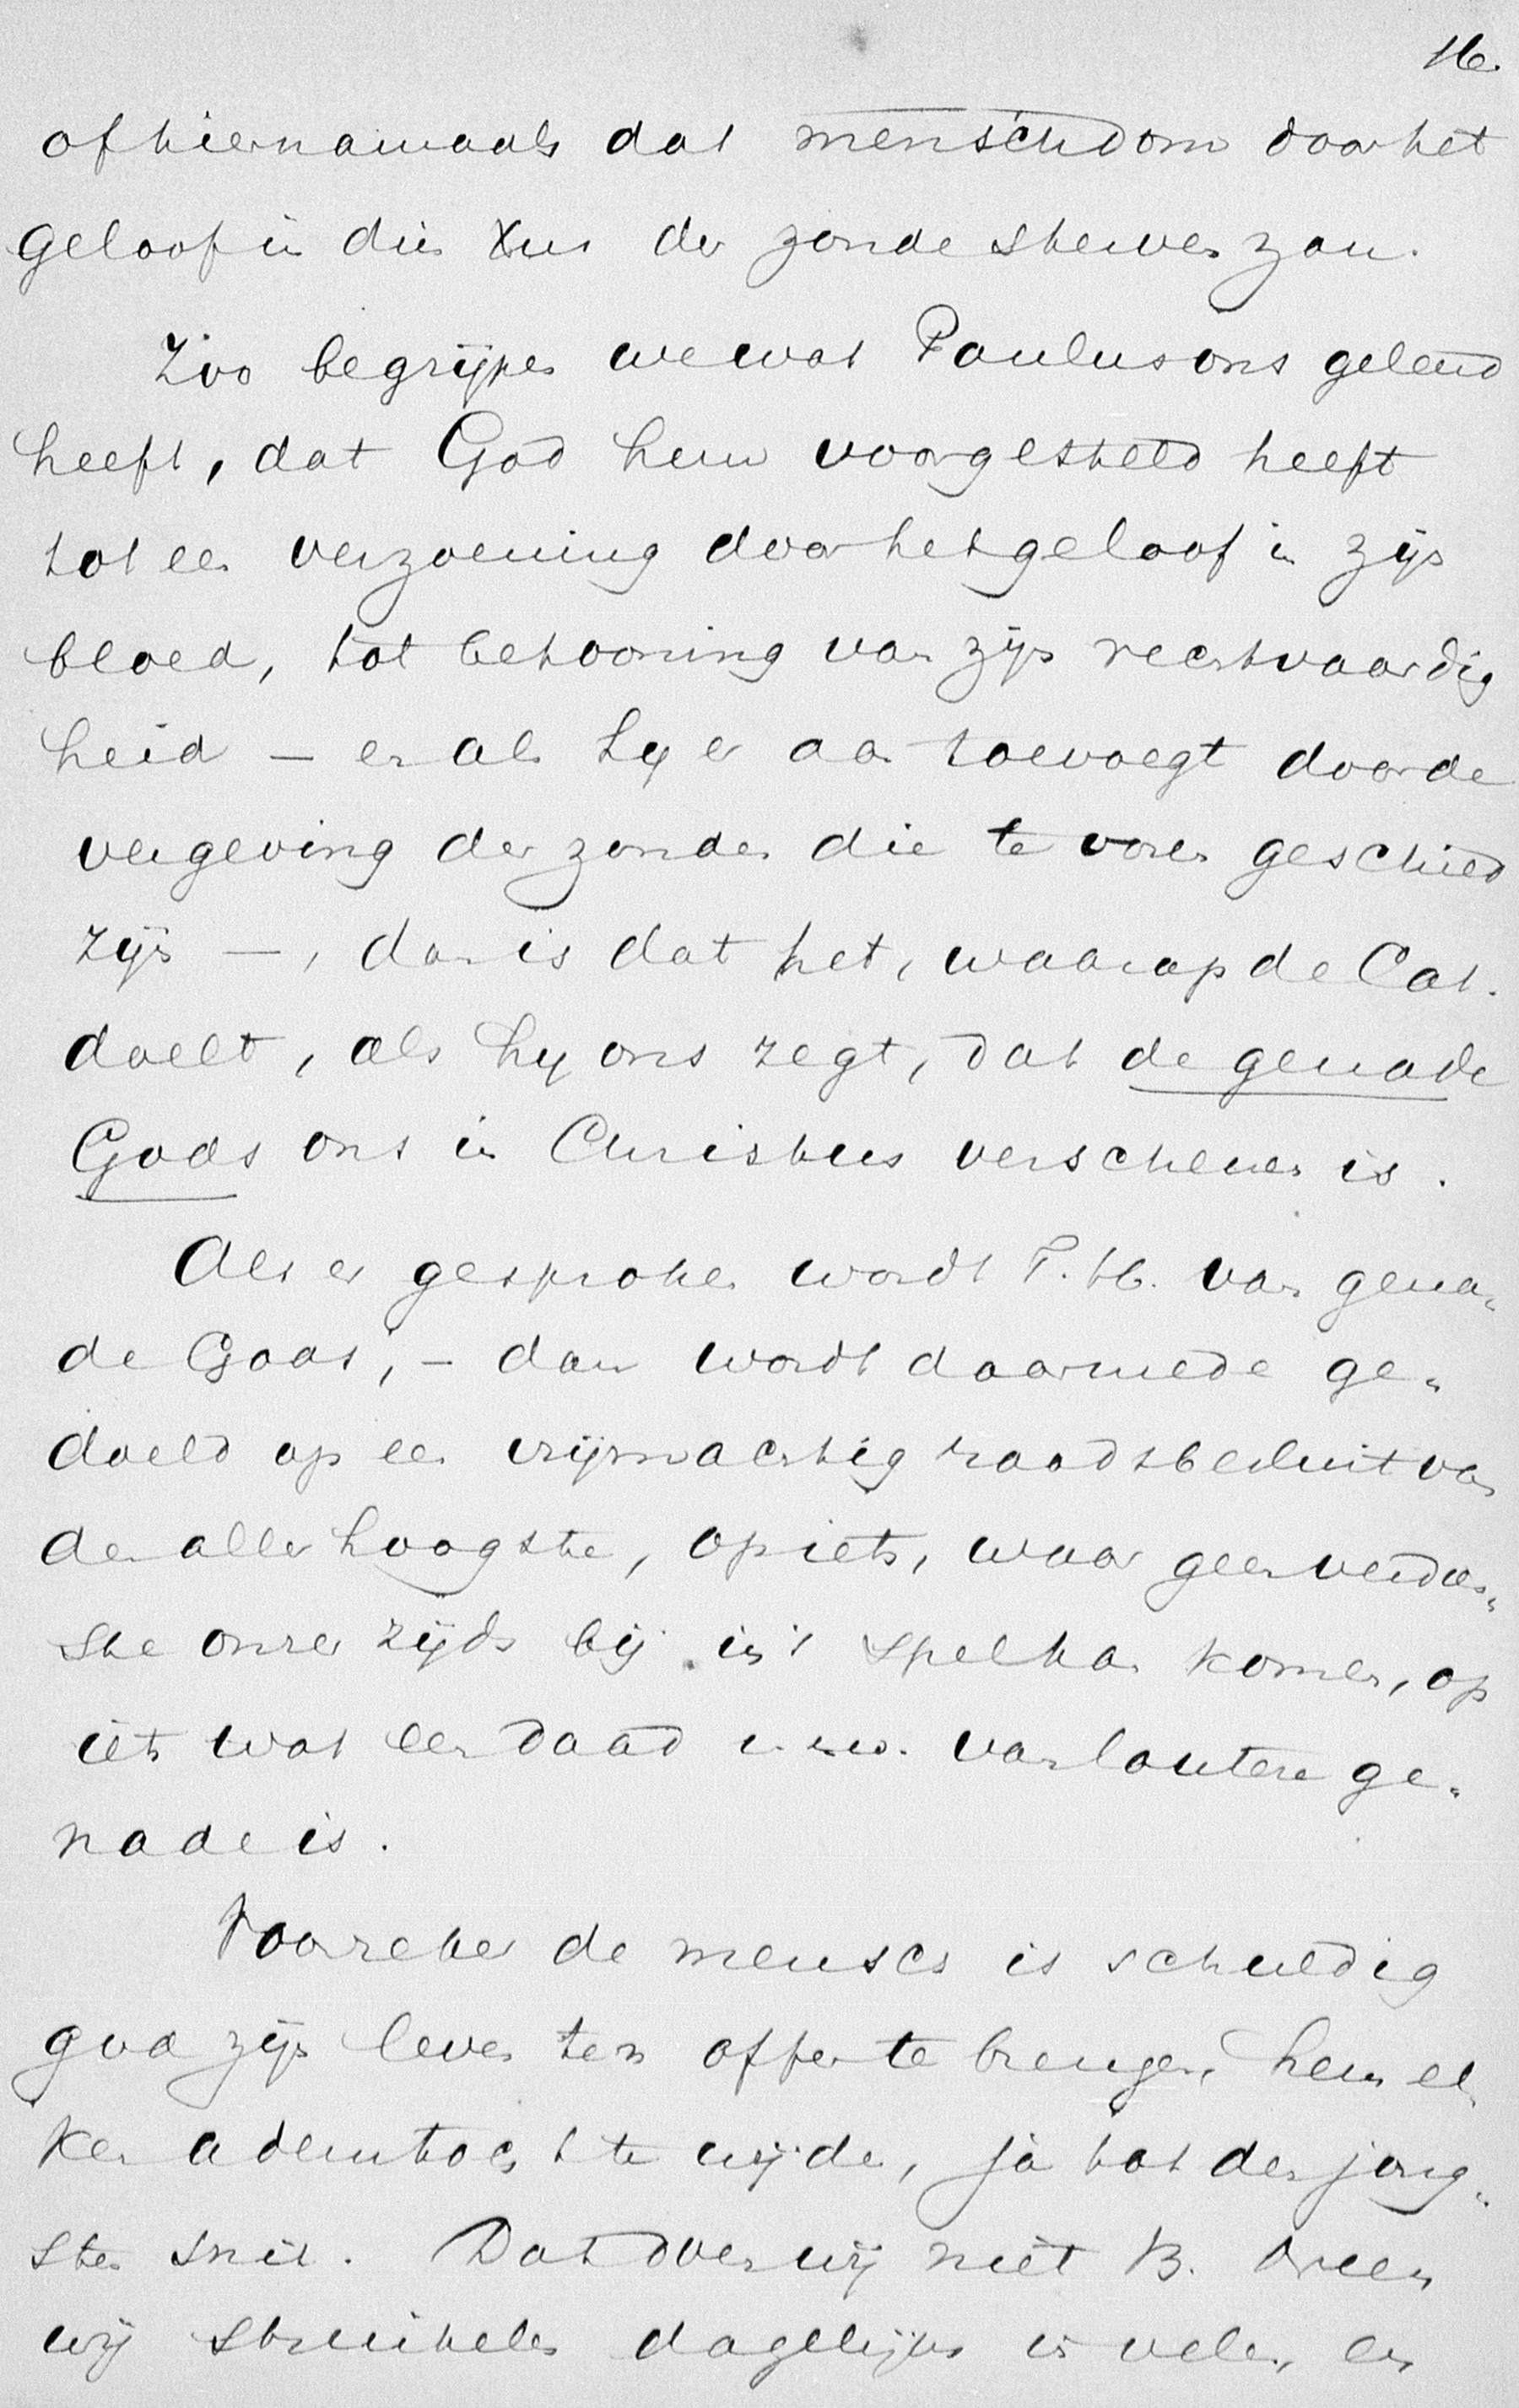 16.
of hiernamaals dat menschdom door het
geloof in dien Xus der zonde sterven zou.
Zoo begrijpen we wat Paulus ons geleerd
heeft, dat God hem voorgesteld heeft
tot een verzoening door het geloof in zijn
bloed, tot betooning van zijn rechtvaardig
heid – en als hij er aan toevoegt door de
vergeving der zonden die te voren geschied
zijn –, dan is dat het, waarop de Cat.
doelt, als hij ons zegt, dat de genade
Gods ons in Christus verschenen is.
Als er gesproken wordt T. H. van gena-
de Gods, – dan wordt daarmede ge-
doeld op een vrijmachtig raadsbesluit van
den allerhoogste, op iets, waar geen verdien-
ste onzer zijds bij in 't spel kan komen, op
iets wat een daad m.a.w. van loutere ge-
nade is.
Voorzeker de mensch is schuldig
god zijn leven ten offer te brengen, hem el-
ken ademtocht te wijden, ja tot den jong-
sten snik. Dat doen wij niet B. Broeders
wij struikelen dagelijks in velen, en